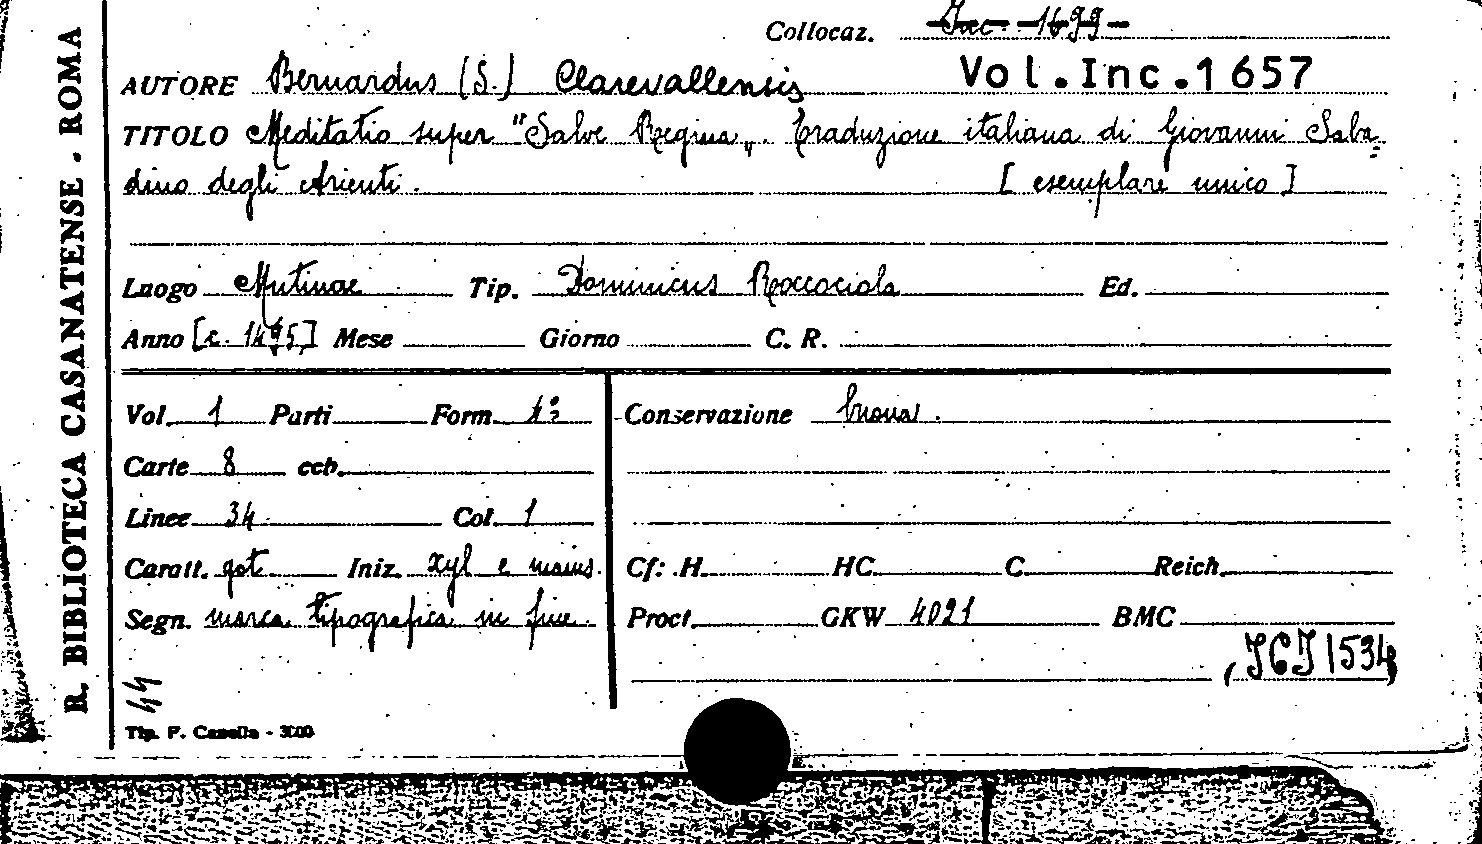 R. BIBLIOTECA CASANATENSE . ROMA
Collocaz. Inc. 1499
Vol.Inc.1657
AUTORE Bernardus (S.) Clarevallensis
TITOLO Meditatio super "Salve Regina„. Traduzione italiana di Giovanni Saba=
dino degli Arienti. [esemplare unico]
Luogo Mutinae Tip. Dominicus Roccociola Ed.
Anno [c. 1495] Mese Giorno C. R.
Vol. 1 Parti Form. 4º Conservazione buona.
Carte 8 ccb.
Linee 34 Col. 1
Caratt. got Iniz. xyl e maius. Cf: H. HC. C. Reich.
Segn. marca tipografica in fine. Proct. GKW 4021 BMC
, IGI 1534
44
Tip. F. Canella - 3000